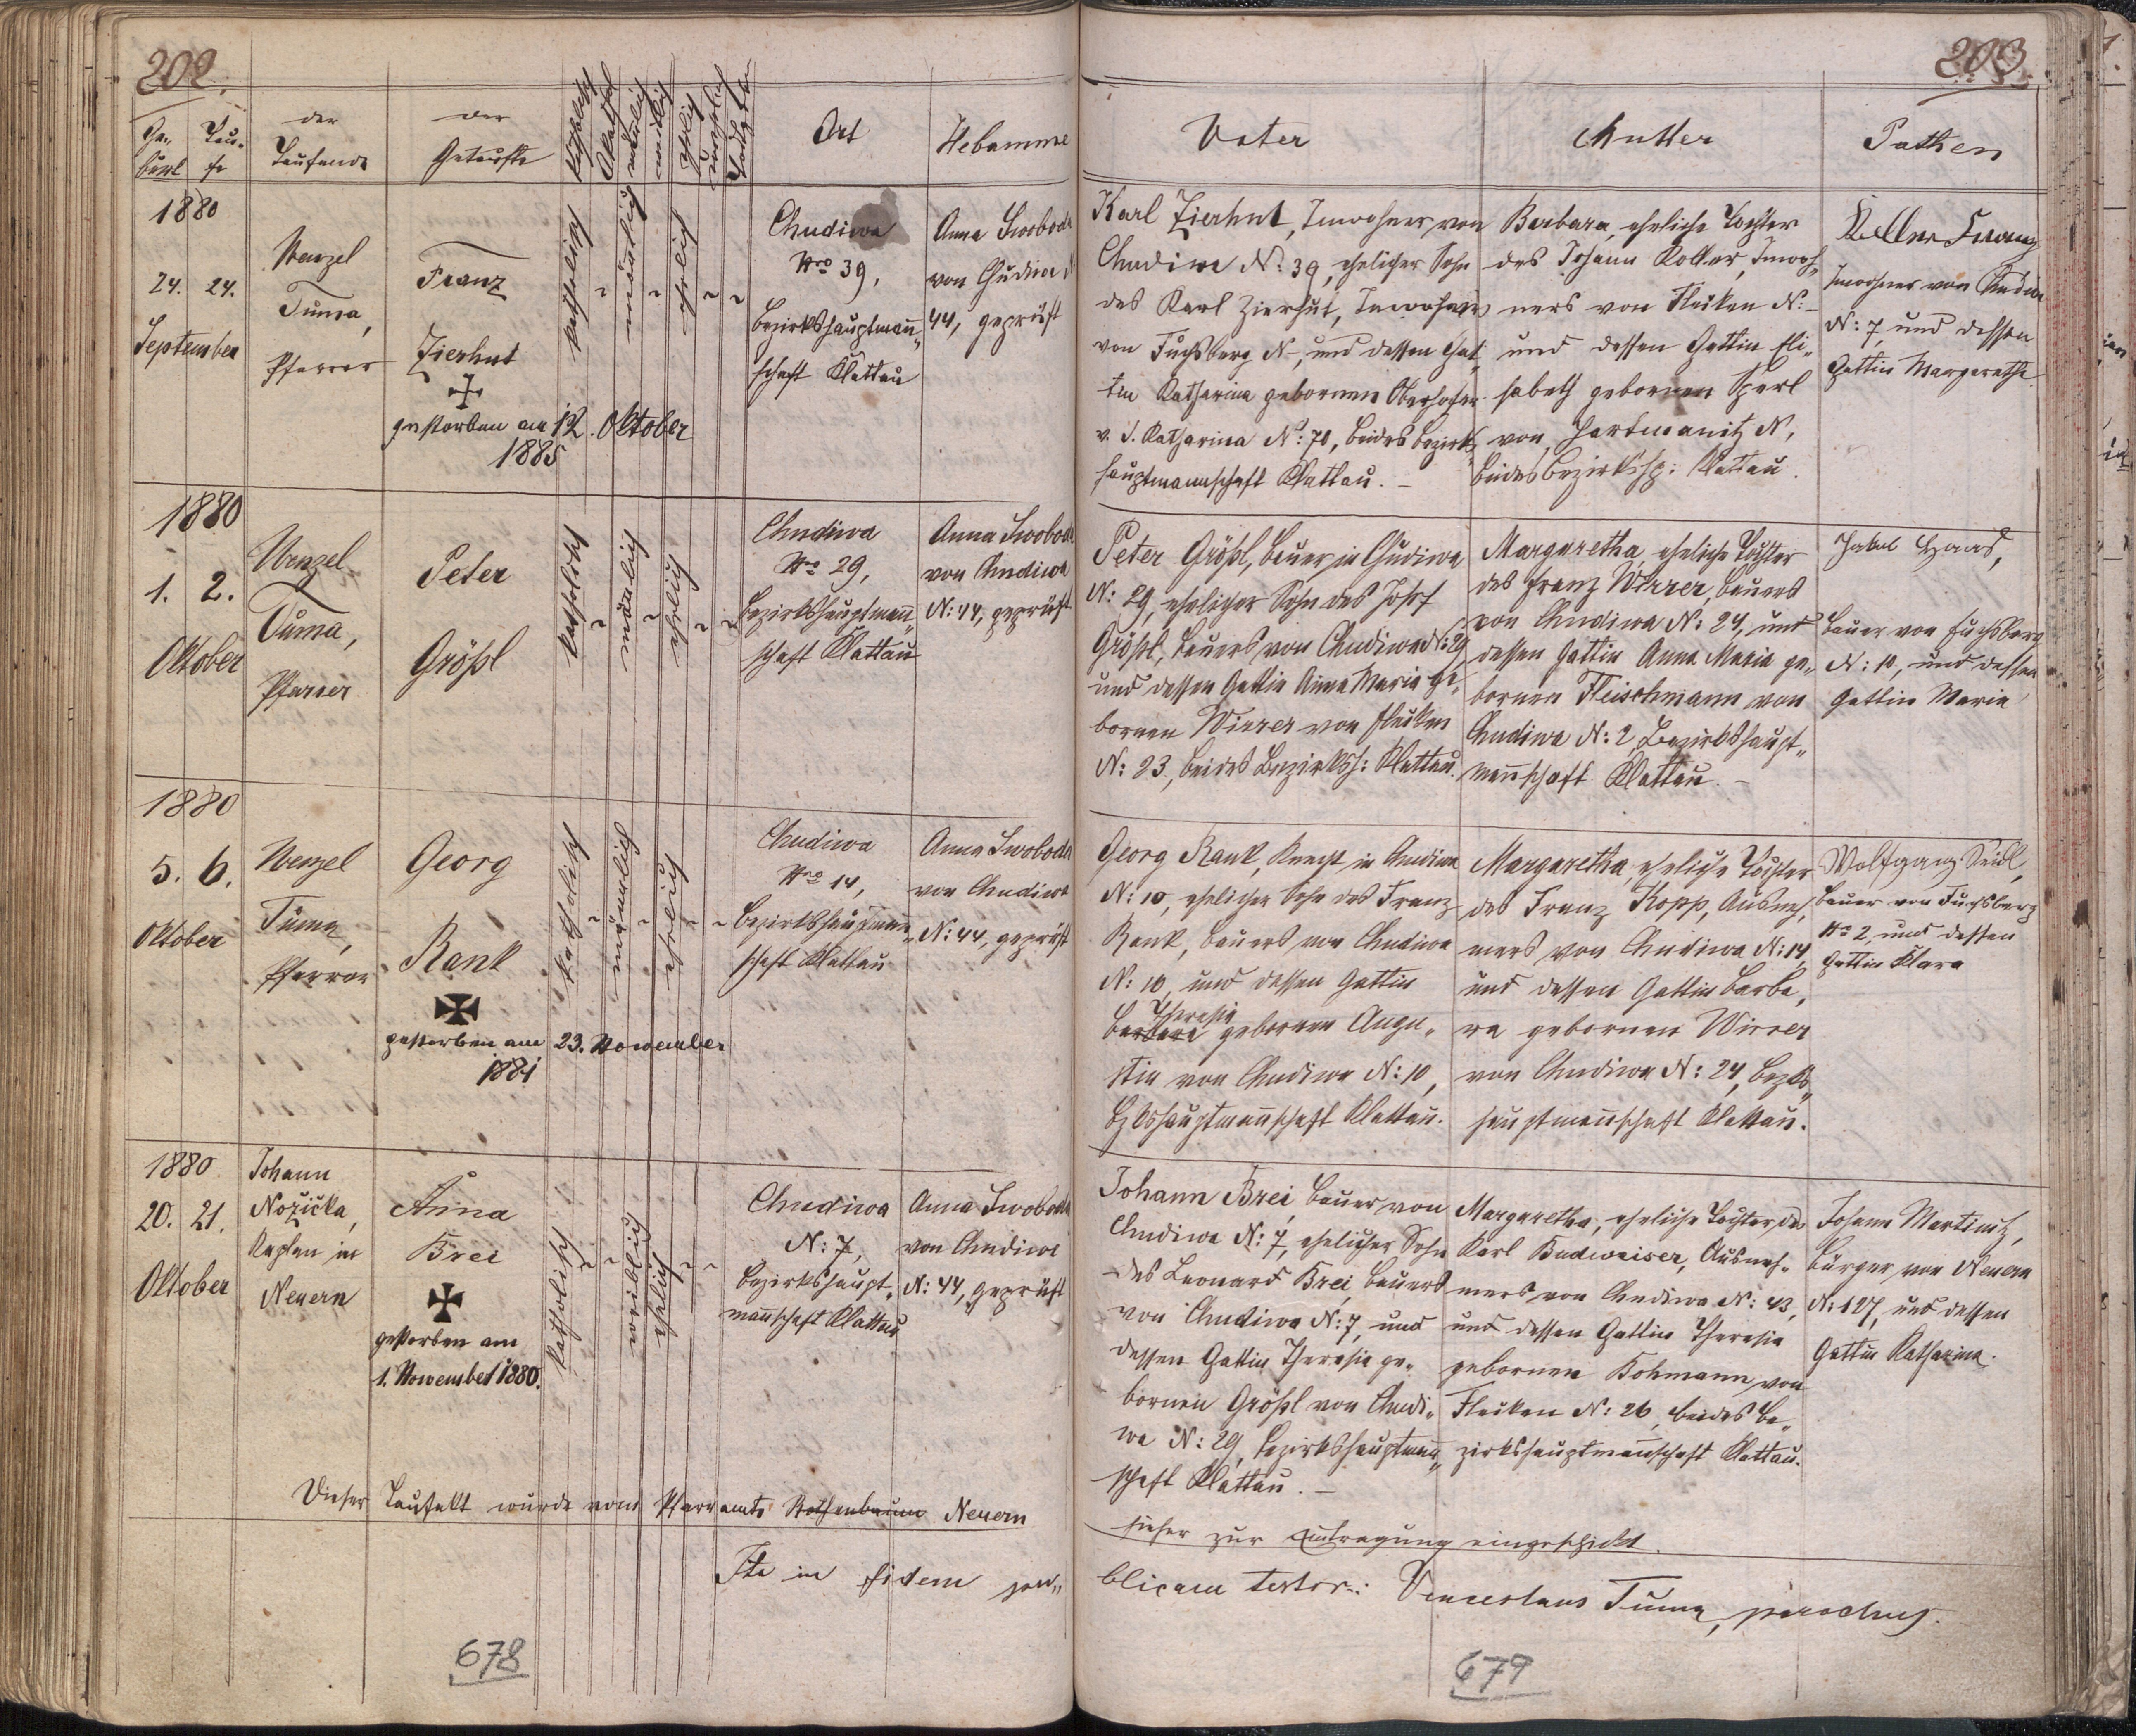 202.
Ge-
burt
Tau-
fe
der
Taufende
der
Getaufte
Katholisch
Akatholisch
männlich
weiblich
ehelich
unehelich
Ort
Hebamme
1880
24. 24.
September
Wenzel
Tuma,
Pfarrer
Franz
Zierhut
gestorben am 12. Oktober
1885
katholisch
männlich
ehelich
Chudiwa
Nro 39,
Bezirkshauptmann„
schaft Klattau
Anna Swoboda
von Chudiwa N
44, geprüft
1880
1. 2.
Oktober
Wenzel
Tuma,
Pfarrer
Peter
Größl
katholisch
mänlich
ehelich
Chudiwa
Nro 29,
Bezirkshauptmann„
schaft Klattau
Anna Swoboda
von Chudiwa
N: 44, geprüft
1880
5. 6.
Oktober
Wenzel
Tuma,
Pfarrer
Georg
Rank
gestorben am 23. November
1881
katholisch
mänlich
ehelich
Chudiwa
Nro 14,
Bezirkshauptmann„
schaft Klattau
Anna Swoboda
von Chudiwa
N: 44, geprüft
1880
20. 21.
Oktober
Johann
Nožička,
Kaplan in
Neuern
Anna
Brei
gestorben am
1. November 1880.
katholisch
weiblich
ehelich
Chudiwa
N: 7,
Bezirkshaupt„
mannschaft Klattau
Anna Swoboda
von Chudiwa
N: 44, geprüft
Dieser Taufakt wurde vom Pfarramte Rothenbaum Neuern
Ita in fidem pu„
678
203.
Vater
Mutter
Pathen
Karl Zierhut, Inwohner von
Chudiwa N: 39, ehelicher Sohn
des Karl Zierhut, Inwohners
von Fuchsberg N-, und dessen Gat„
tin Katharina gebornen Oberhofer
v. S. Katharina N: 70, beides Bezirks„
hauptmannschaft Klattau. –
Barbara, eheliche Tochter
des Johann Koller, Inwoh„
ners von Flecken N: –
und dessen Gattin Eli„
sabeth gebornen Sperl
von Hartmanitz N,
beides Bezirkshp: Klattau.
Koller Franz
Inwohner von Chudiwa
N: 7, und dessen
Gattin Margaretha.
Peter Größl, Bauer in Chudiwa
N: 29, ehelicher Sohn des Josef
Größl, Bauers von Chudiwa N: 29
und dessen Gattin Anna Maria ge„
bornen Wirrer von Flecken
N: 23, beides Bezirksh: Klattau.
Margaretha, eheliche Tochter
des Franz Wirrer, Bauers
von Chudiwa N: 24, und
dessen Gattin Anna Maria ge„
bornen Fleischmann von
Chudiwa N: 2, Bezirkshaupt„
mannschaft Klattau. –
Jakob Haas,
Bauer von Fuchsberg
N: 10, und dessen
Gattin Maria
Georg Rank, Knecht in Chudiwa
N: 10, ehelicher Sohn des Franz
Rank, Bauers von Chudiwa
N: 10, und dessen Gattin
Theresia
Barbara gebornen Augu„
stin von Chudiwa N: 10,
Bzkshauptmannschaft Klattau.
Margaretha, eheliche Tochter
des Franz Kopp, Ausneh„
mers von Chudiwa N: 14,
und dessen Gattin Barba„
ra gebornen Wirrer
von Chudiwa N: 24, Bezks„
hauptmannschaft Klattau.
Wolfgang Seidl,
Bauer von Fuchsberg
Nro 2, und dessen
Gattin Klara
Johann Brei, Bauer von
Chudiwa N: 7, ehelicher Sohn
des Leonard Brei, Bauers
von Chudiwa N: 7, und
dessen Gattin Theresia ge„
bornen Größl von Chudi„
wa N: 29, Bezirkshauptmann„
schaft Klattau. –
Margaretha, eheliche Tochter des
Karl Budweiser, Ausneh„
mers von Chudiwa N: 43,
und dessen Gattin Theresia
gebornen Kohmann von
Flecken N: 26, beides Be„
zirkshauptmannschaft Klattau.
Johann Martinitz,
Bürger von Neuern
N: 127, und dessen
Gattin Katharina.
hieher zur Eintragung eingeschickt.
blicam testor: Venceslaus Tuma, parochus.
679